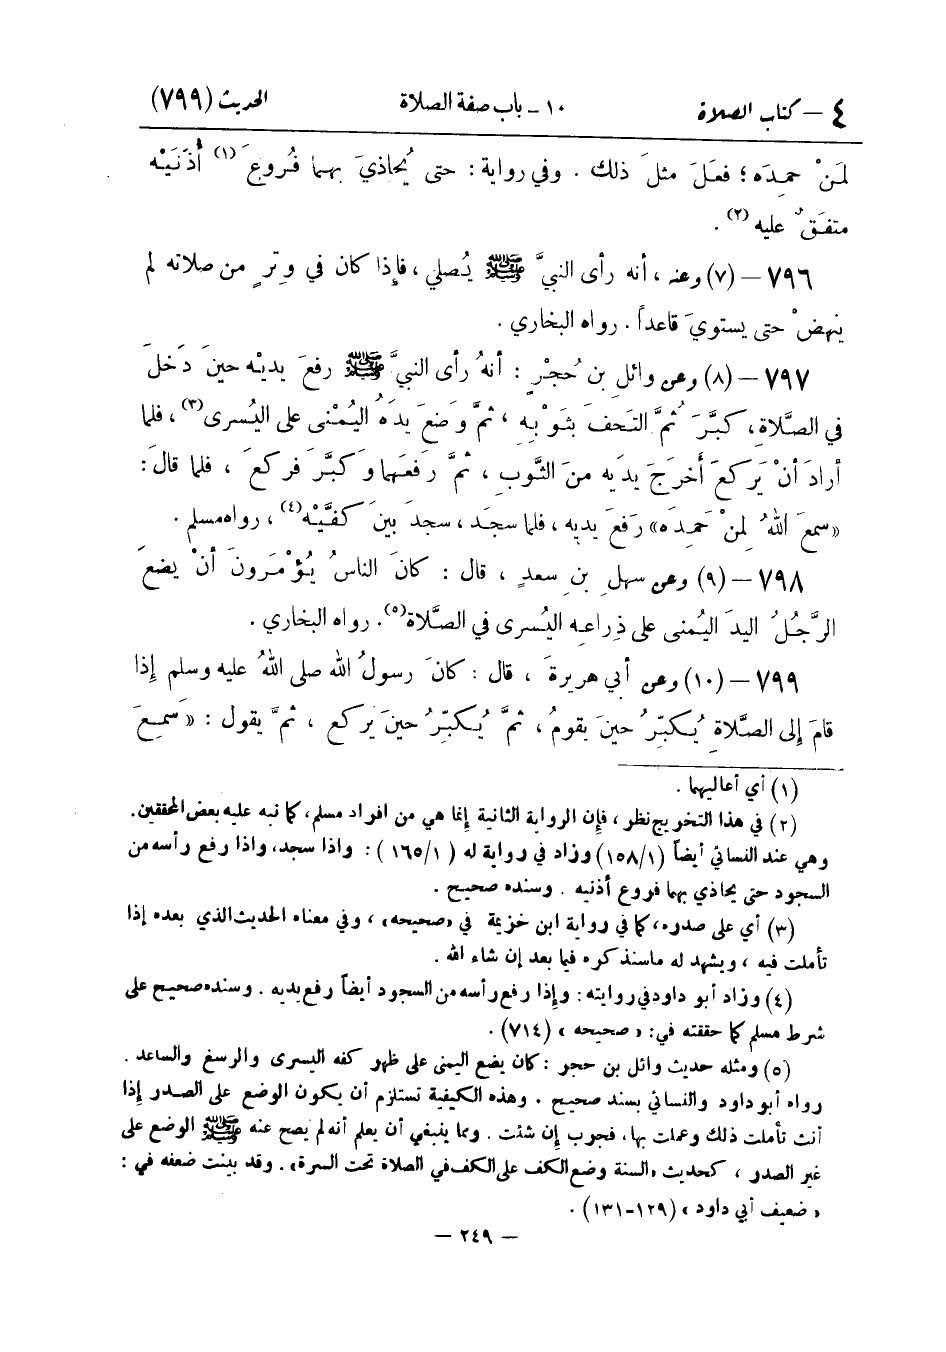 ٤ – كتاب الصلاة ١٠ – باب صفة الصلاة الحديث (٧٩٩)
لمَنْ حمدَه؛ فعَلَ مثلَ ذلك . وفي رواية : حتى يُحاذيَ بهما فُروعَ (١) أُذُنَيْه
متفَقٌ عليه (٢) .
٧٩٦ – (٧) وعنه ، أنه رأى النبيَّ ﷺ يُصلي ، فإِذا كان في وِترٍ من صلاته لم
ينهضْ حتى يستويَ قاعداً . رواه البخاري .
٧٩٧ – (٨) وعن وائلِ بنِ حُجْرٍ : أنهُ رأى النبيَّ ﷺ رفعَ يديْه حينَ دَخلَ
في الصَّلاةِ، كبَّرَ ثُمَّ التَحفَ بثَوْبِه ، ثمَّ وَضعَ يدَهُ اليُمْنى على اليُسرى(٣) ، فلما
أرادَ أنْ يَركعَ أَخرَجَ يدَيه منَ الثَّوبِ ، ثمَّ رَفعَهما وَكبَّرَ فركعَ ، فلما قالَ :
«سمعَ اللهُ لِمنْ حَمِدَه» رَفعَ يديه ، فلما سجَد ، سجدَ بينَ كفَّيْه(٤) ، رواه مسلم .
٧٩٨ – (٩) وعن سهلِ بنِ سعدٍ ، قال : كانَ الناسُ يُؤْمَرونَ أنْ يضعَ
الرَّجُلُ اليدَ اليُمنى على ذِراعِه اليُسرى في الصَّلاة(٥). رواه البخاري .
٧٩٩ – (١٠) وعن أبي هريرةَ ، قال : كانَ رسولُ الله صلى اللهُ عليه وسلم إِذا
قامَ إِلى الصَّلاةِ يُكبِّرُ حينَ يقومُ ، ثمَّ يُكبِّرُ حينَ يَركع ، ثمَّ يقول : «سَمِعَ
(١) أي أعاليهما .
(٢) في هذا التخريج نظر ، فإن الرواية الثانية إنما هي من افراد مسلم، كما نبه عليه بعض المحققين.
وهي عند النسائي أيضاً (١/١٥٨) وزاد في رواية له (١/١٦٥) : واذا سجد، واذا رفع رأسه من
السجود حتى يحاذي بهما فروع أذنيه . وسنده صحيح .
(٣) أي على صدره، كما في رواية ابن خزيمة في «صحيحه» ، وفي معناه الحديث الذي بعده إذا
تأملت فيه ، ويشهد له ماسنذكره فيما بعد إن شاء الله .
(٤) وزاد أبو داود في روايته : وإذا رفع رأسه من السجود أيضاً رفع يديه . وسنده صحيح على
شرط مسلم كما حققته في: «صحيحه» (٧١٤) .
(٥) ومثله حديث وائل بن حجر : كان يضع اليمنى على ظهر كفه اليسرى والرسغ والساعد .
رواه أبو داود والنسائي بسند صحيح . وهذه الكيفية تستلزم أن يكون الوضع على الصدر إذا
أنت تأملت ذلك وعملت بها، فجرب إن شئت . ومما ينبغي أن يعلم أنه لم يصح عنه ﷺ الوضع على
غير الصدر ، كحديث «السنة وضع الكف على الكف في الصلاة تحت السرة» . وقد بينت ضعفه في :
«ضعيف أبي داود» (١٢٩–١٣١) .
– ٢٤٩ –